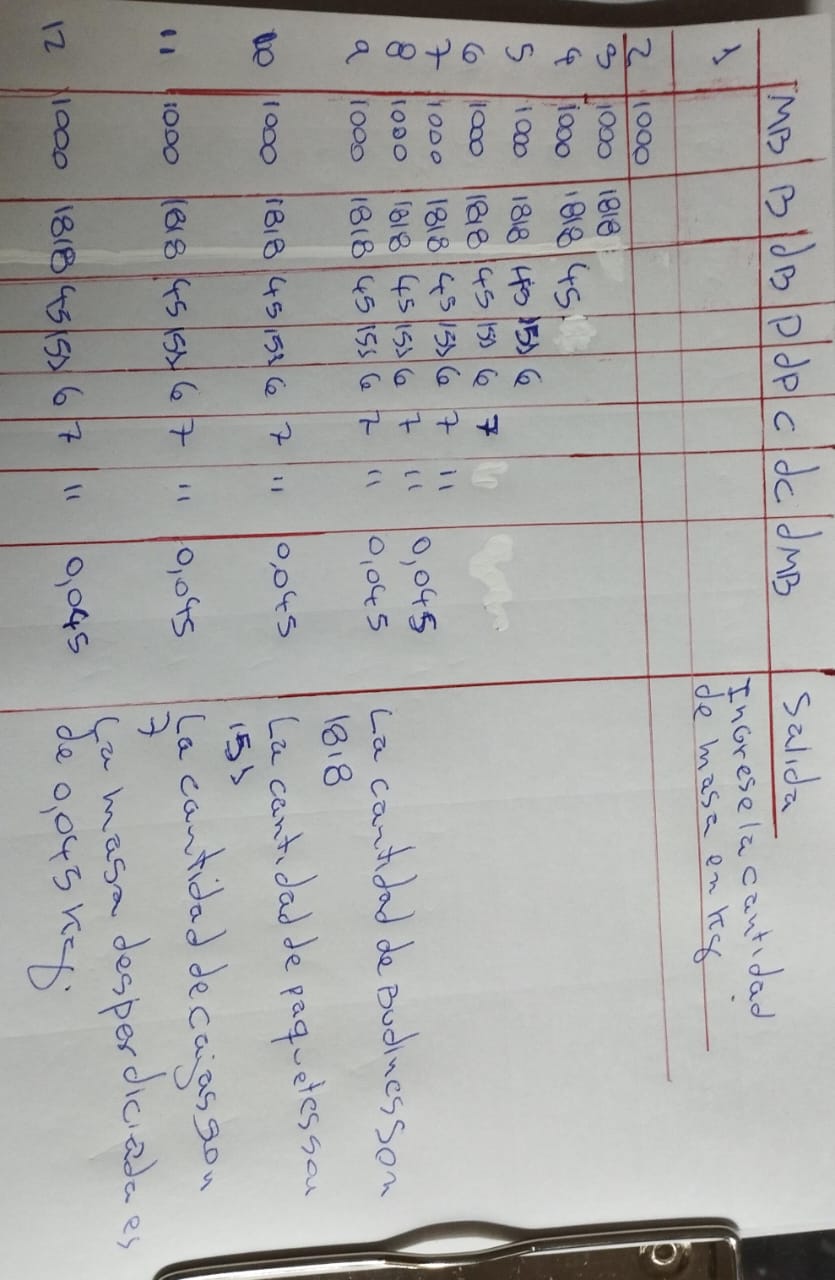 MB B dB P dP C dC dMB Salida
1 Ingrese la cantidad
de masa en kg
2 1000
3 1000 1818
4 1000 1818 45
5 1000 1818 45 151 6
6 1000 1818 45 151 6 7
7 1000 1818 45 151 6 7 11
8 1000 1818 45 151 6 7 11 0,045
9 1000 1818 45 151 6 7 11 0,045 La cantidad de Budines son
1818
10 1000 1818 45 151 6 7 11 0,045 La cantidad de paquetes son
151
11 1000 1818 45 151 6 7 11 0,045 La cantidad de cajas son
7
12 1000 1818 45 151 6 7 11 0,045 La masa desperdiciada es
de 0,045 kg.